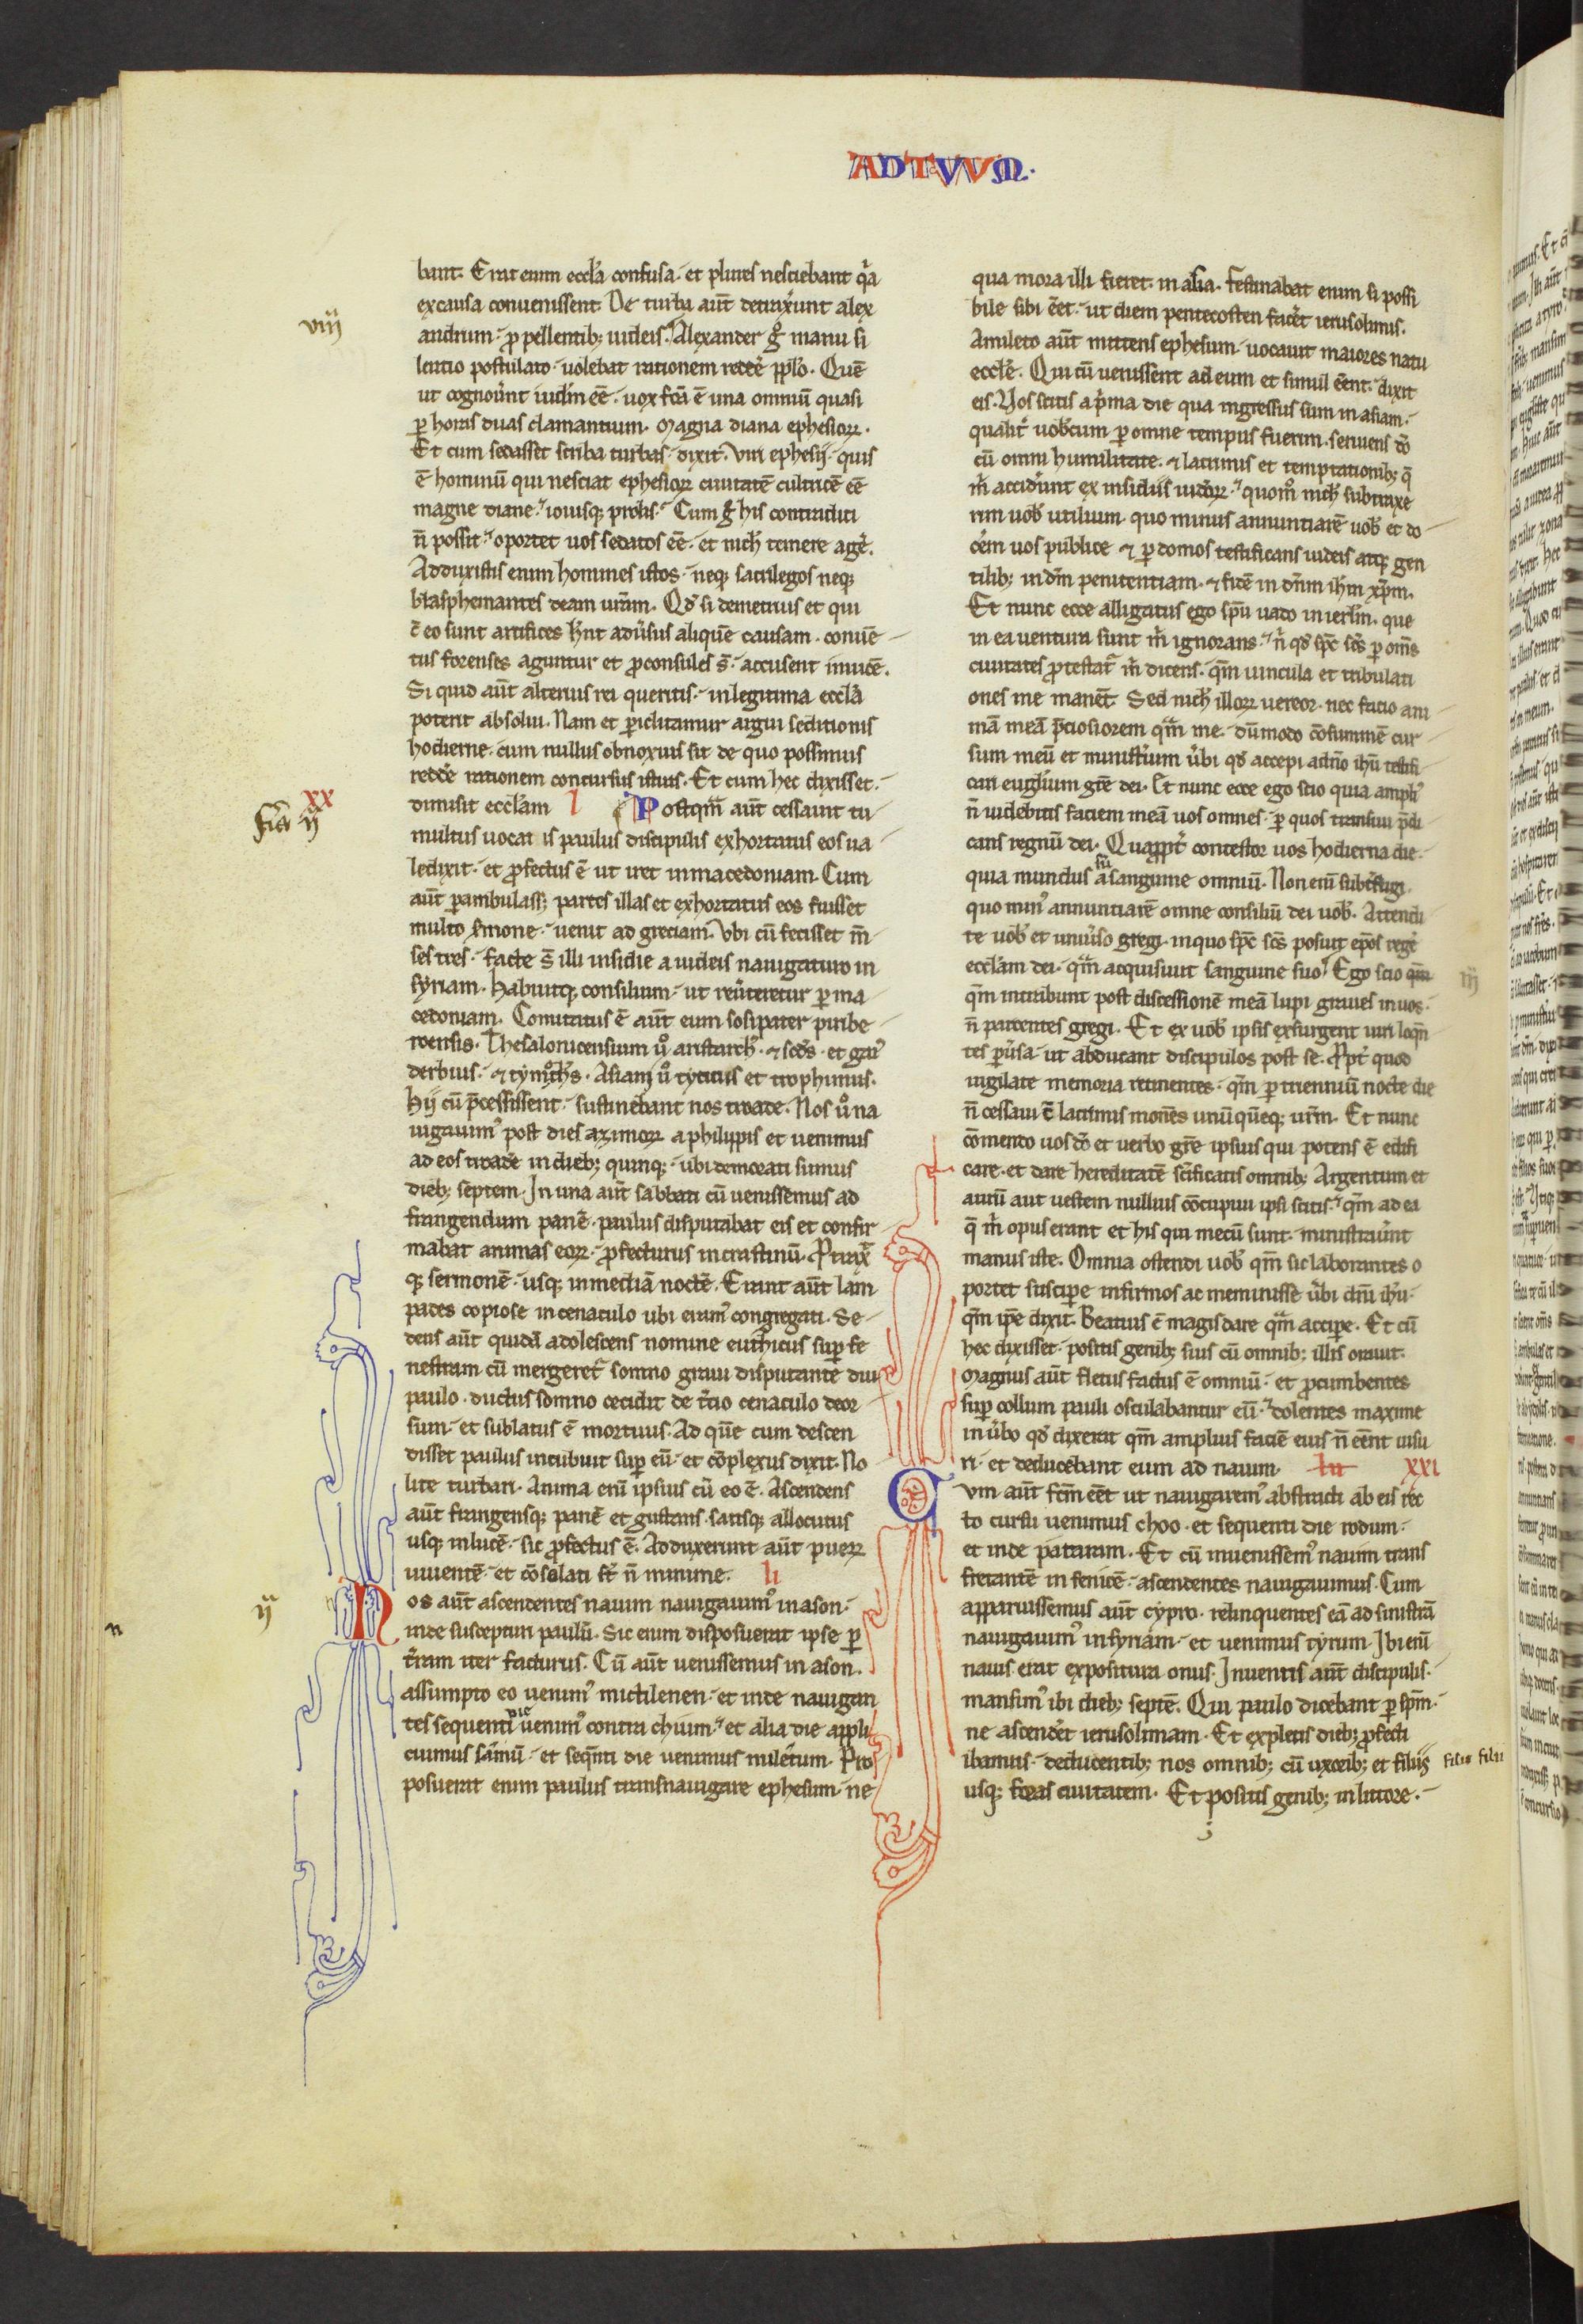 ACTVVM.
bant. Erat enim eccl'a confusa. et plures nesciebant q̾a
ex causa convenissent. De turba aut̄ detraxer̄unt alex
andrum. ꝓpellentib; iudeis. Alexander g̊ manu si
lentio postulato. uolebat rationem redde᷒ pp̄lo. Quē
ut cognouer̄unt iudm̄ ēē. uox fc̄a ē una omniū quasi
ꝑ horas duas clamantium. magna diana ephesioꝝ.
Et cum sedasset scriba turbas. dixit. Viri ephesii. quis
ē hominū qui nesciat ephesioꝝ ciuitatē cultricē ēē
magne diane. iouisq; prolis. Cum g̊ his contradici
n̄ possit. oportet uos sedatos ēē. et nich' temere age᷒.
Adduxistis enim homines istos. neq; sacrilegos neq;
blasphemantes deam ur̄am. Qd' si demetrius et qui
c̄ eo sunt artifices hn̄t adu᷒sus aliquē causam. conuē
tus forenses aguntur et ꝓconsules s̄. accusent inuicē.
Si quid aut̄ alterius rei queritis. in legitima eccl'a
poterit absolui. Nam et ꝑiclitamur argui seditionis
hodierne. cum nullus obnoxius sit de quo possimus
redde᷒ rationem concursus istius. Et cum hec dixisset.
dimisit eccl'am l Postqm̄ aut̄ cessauit tu
multus uocat is paulus discipulis exhortatus eos ua
ledixit. et ꝓfectus ē ut iret in macedoniam. Cum
aut̄ ꝑambulass; partes illas et exhortatus eos fuisset
multo s᷒mone. uenit ad greciam. Vbi cū fecisset m̄
ses tres. facte s̄ illi insidie a iudeis nauigaturo in
syriam. habuitq; consilium. ut reu᷒teretur ꝑ ma
cedoniam. Comitatus ē aut̄ eum sosipater pirri be
roensis. Thesalonicensium ů aristarch'. & scds. et gai᷒
derbius. & tymoth's. Asiani ů tyticus et trophimus.
Hij cū p̄cessissent. sustinebant nos troade. Nos ů na
uigauim᷒ post dies azimoꝝ a philippis et uenimus
ad eos troadē in dieb; quinq;. ubi demorati sumus
dieb; septem. In una aut̄ sabbati cū uenissemus ad
frangendum panē. paulus disputabat eis et confir
mabat animas eoꝝ. ꝓfecturus in crastinū. Ptrax̄
q; sermonē. usq; in mediā noctē. Erant aut̄ lam
pades copiose in cenaculo ubi eram᷒ congregati. Se
dens aut̄ quidā adolescens nomine euthicus suꝑ fe
nestram cū mergeret᷒ somno graui disputante diu
paulo. ductus somno cecidit de t᷒cio cenaculo deor
sum. et sublatus ē mortuus. Ad quē cum descen
disset paulus incubuit suꝑ eū. et cōplexus dixit. No
lite turbari. Anima eni ipsius cū eo ē. Ascendens
aut̄ frangensq; panē et gustans. satisq; allocutus
usq; in lucē. sic ꝓfectus ē. Adduxerunt aut̄ pueꝝ
uiuentē. et cōsolati st̄ n̄ minime. li
Nos aut̄ ascendentes nauim nauigauim᷒ in ason.
inde suscepturi paulū. Sic enim disposuerat ipse ꝑ
t᷒ram iter facturus. Cū aut̄ uenissemus in ason.
assumpto eo uenim᷒ mitilenen. et inde nauigan
tes sequenti die uenim᷒ contra chium. et alia die appli
cuimus samū. et seqn̄ti die uenimus miletum. Pro
posuerat enim paulus transnauigare ephesum. ne
qua mora illi fieret in asia. Festinabat enim si possi
bile sibi ēēt. ut diem pentecosten fac᷒et ierusolimis.
A mileto aut̄ mittens ephesum. uocauit maiores natu
eccl'e. Qui cū uenissent ad eum et simul ēēnt. dixit
eis. Vos scitis a p᷒ma die qua ingressus sum in asiam.
qualit᷒ uob'cum ꝑ omne tempus fuerim. seruiens dō
cū omni humilitate. & lacrimis et temptationib; q̄
m̄ accider̄unt ex insidiis iudeoꝝ. quom̊ nich' subtraxe
rim uob' utilium. quo minus annuntiarē uob' et do
cērm uos publice & ꝑ domos testificans iudeis atq; gen
tilib; in dm̄ penitentiam. & fidē in dn̄m ihm̄ xp̄m.
Et nunc ecce alligatus ego sp̄u uado in ierlm̄. que
in ea uentura sunt m̄ ignorans. n̄ qd' sp̄c sc̄s ꝑ om̄s
ciuitates ꝓtestat᷒ m̄ dicens. qm̄ uincula et tribulati
ones me manēt. Sed nich' illoꝝ uereor. nec facio ani
mā meā p̄ciosiorem qm̄ me. dūmodo cōsummē cur
sum meū et minist᷒ium u᷒bi qd' accepi a dn̄o ihū testifi
cari eugl'ium gr̄e dei. Et nunc ecce ego scio quia ampli᷒
n̄ uidebitis faciem meā uos omnes. ꝑ quos transiui p̄di
cans regnū dei. Quapp̄t᷒ contestor uos hodierna die.
quia mundus sū a sanguine omniū. Non eni subt᷒fugi
quo min᷒ annuntiarē omne consiliū dei uob'. Attendi
te uob' et uniu᷒so gregi. in quo sp̄c sc̄s posuit ep̄os rege᷒
eccl'am dei. qm̄ acquisiuit sanguine suo. Ego scio qm̄
qm̄ intrabunt post discessionē meā lupi graues in uos.
n̄ parcentes gregi. Et ex uob' ipsis exsurgent uiri loqn̄
tes ꝑu᷒sa. ut abducant discipulos post se. Ppt᷒ quod
uigilate memoria retinentes. qm̄ ꝑ trienniū nocte die
n̄ cessaui c̄ lacrimis monēs unū quēq; ur̄m. Et nunc
cōmendo uos dō et uerbo gr̄e ipsius qui potens ē edifi
care. et dare hereditatē sc̄ificatis omnib; Argentum et
aurū aut uestem nullius cōcupiui ipsi scitis. qm̄ ad ea
q̄ m̄ opus erant et his qui mecū sunt. ministrauer̄unt
manus iste. Omnia ostendi uob' qm̄ sic laborantes o
portet susciꝑe infirmos ac meminisse u᷒bi dn̄i ihū.
qm̄ ip̄e dixit. Beatius ē magis dare qm̄ acciꝑe. Et cū
hec dixisset. positis genib; suis cū omnib; illis orauit.
Magnus aut̄ fletus factus ē omniū. et ꝓcumbentes
suꝑ collum pauli osculabantur eū. dolentes maxime
in u᷒bo qd' dixerat qm̄ amplius faciē eius n̄ eēnt uisu
ri. et deducebant eum ad nauim. lii XXI
Cvm aut̄ fc̄m ēēt ut nauigarem᷒ abstracti ab eis rec
to cursu uenimus choo. et sequenti die rodum.
et inde pataram. Et cū inuenissem᷒ nauim trans
fretantē in fenicē. ascendentes nauigauimus. Cum
apparuissemus aut̄ cypro. relinquentes eā ad sinistrā
nauigauim᷒ in syriam. et uenimus tyrum. Ibi eni
nauis erat expositura onus. Inuentis aut̄ discipulis.
mansim᷒ ibi dieb; septē. Qui paulo dicebant ꝑ sp̄m.
ne ascender̄et ierusolimam. Et expletis dieb; ꝓfecti
ibamus. deducentib; nos omnib; cū uxorib; et filiis
usq; foras ciuitatem. Et positis genib; in littore.
viij
xx
ij
ij
n
iij